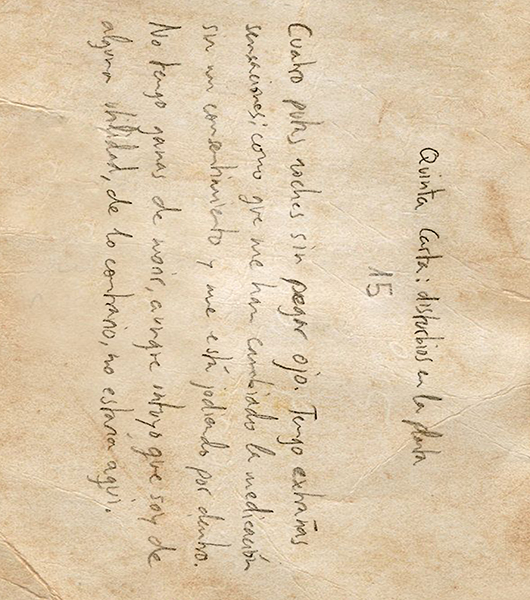 Quinta Carta: disturbios en la planta
15
Cuatro putas noches sin pegar ojo. Tengo extrañas
sensaciones; como que me han cambiado la medicación
sin mi consentimiento y me está jodiendo por dentro.
No tengo ganas de morir, aunque intuyo que soy de
alguna utilidad, de lo contrario, no estaría aquí.